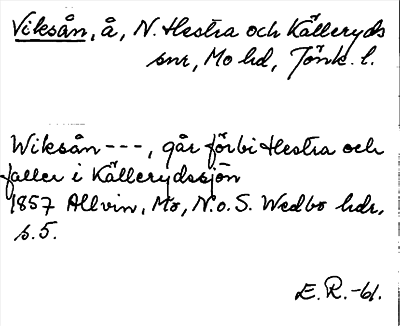 Viksån, å, N. Hestra och Källeryds
snr, Mo hd, Jönk. l.
Wiksån ---, går förbi Hestra och
faller i Källerydssjön
1857 Allvin, Mo, N. o. S. Wedbo hdr,
s. 5.
E. R. -61.